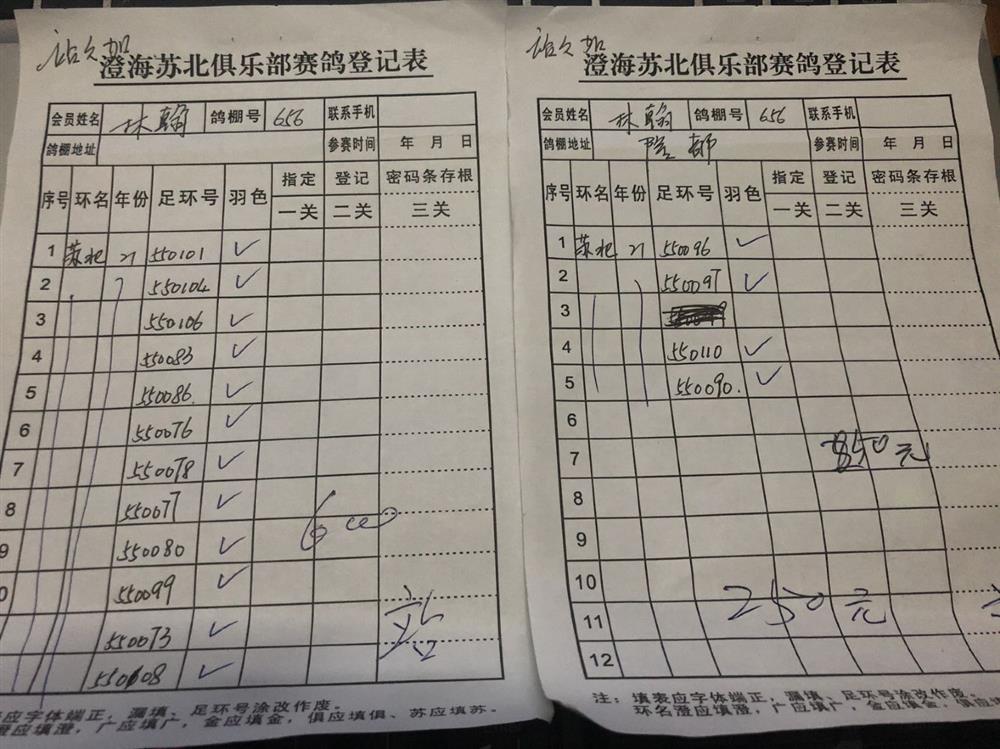 澄海苏北俱乐部赛鸽登记表
会员姓名 林翰 鸽棚号 656 联系手机
鸽棚地址 参赛时间 年 月 日
序号 环名 年份 足环号 羽色 指定 登记 密码条存根
一关 二关 三关
1 苏北 21 550101 ✓
2 550104 ✓
3 550106 ✓
4 550083 ✓
5 550086 ✓
6 550076 ✓
7 550078 ✓
8 550077 ✓
9 550080 ✓
0 550099 ✓
550073 ✓
550108 ✓
600
应字体端正，漏填、足环号涂改作废。
澄应填澄，广应填广，金应填金，俱应填俱、苏应填苏。
澄海苏北俱乐部赛鸽登记表
会员姓名 林翰 鸽棚号 656 联系手机
鸽棚地址 隆都 参赛时间 年 月 日
序号 环名 年份 足环号 羽色 指定 登记 密码条存根
一关 二关 三关
1 苏北 21 550096 ✓
2 550097 ✓
3
4 550110 ✓
5 550090. ✓
6
7 850元
8
9
10
11 250元
12
注：填表应字体端正，漏填、足环号涂改作废。
环名澄应填澄，广应填广，金应填金，俱应填